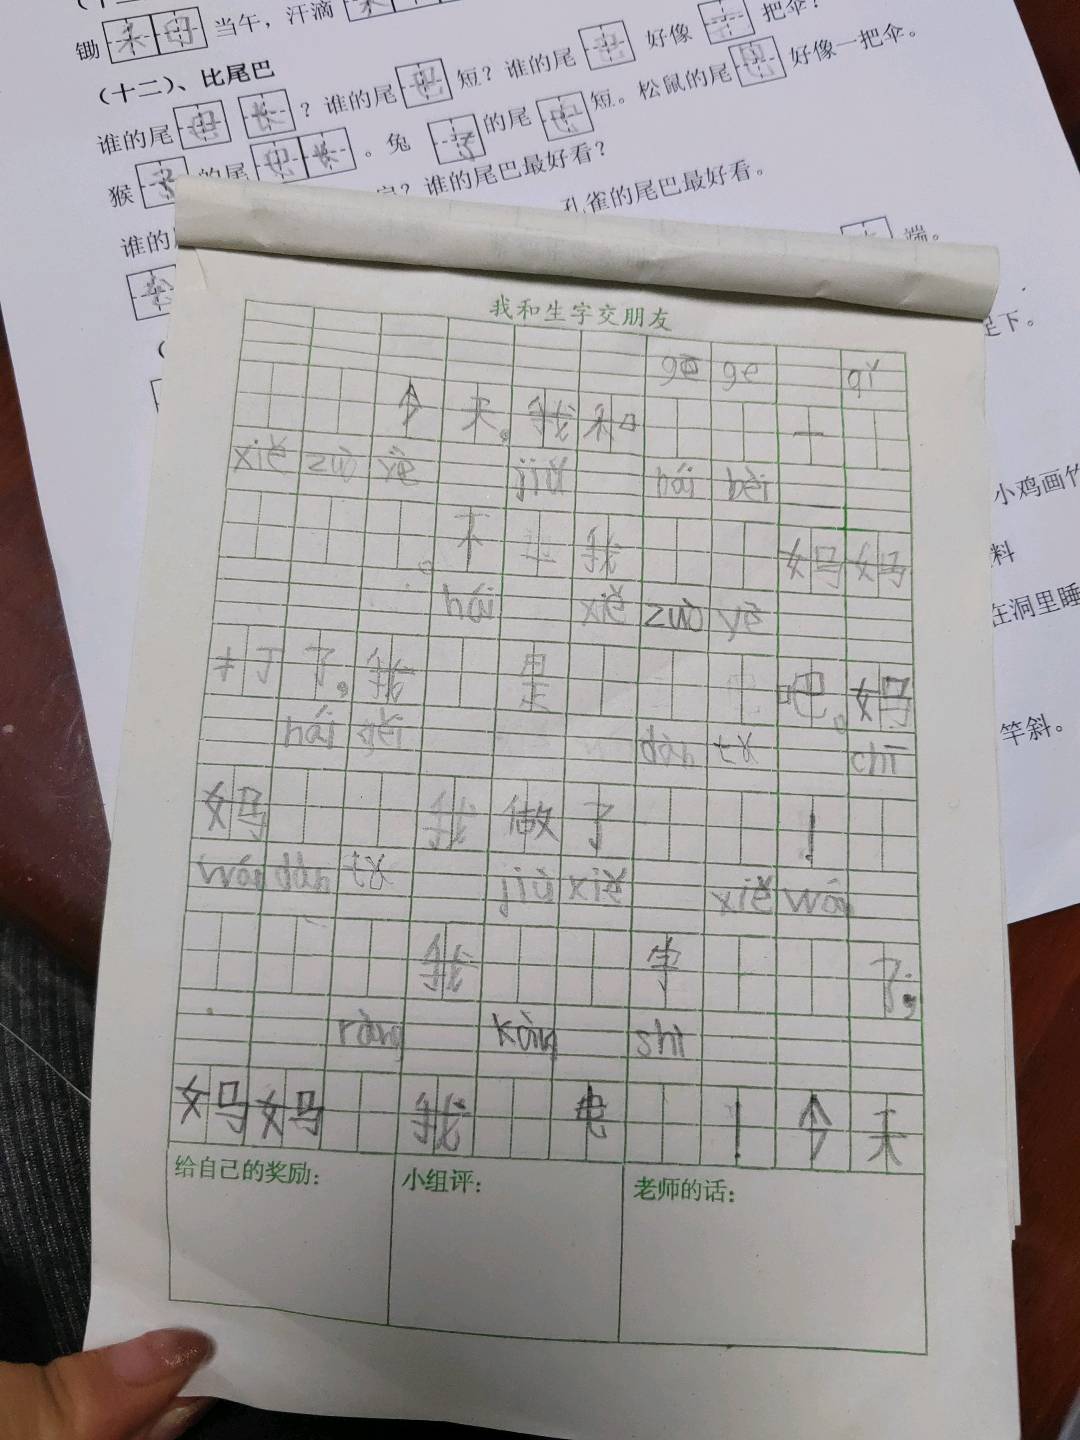 锄禾 当午，汗滴禾
（十二）、比尾巴
谁的尾巴长？谁的尾巴短？谁的尾巴 好像一把伞？
猴子的尾巴长。兔子的尾巴短。松鼠的尾巴好像一把伞。
谁的 谁的尾巴最好看？
孔雀的尾巴最好看。
端。
足下。
小鸡画竹
料
在洞里睡
竿斜。
我和生字交朋友
gē ge qǐ
个天。我和 一
xiě zuò yè jiù hái bèi
。不 我 妈妈
hái xiě zuò yè
打了，我 是 吧。妈
hái gěi dàn chī
妈 我做了 ！
wán dàn jiù xiě xiě wán
我 学 了，
ràng kàng shì
妈妈 我 电 ！今天
给自己的奖励：
小组评：
老师的话：